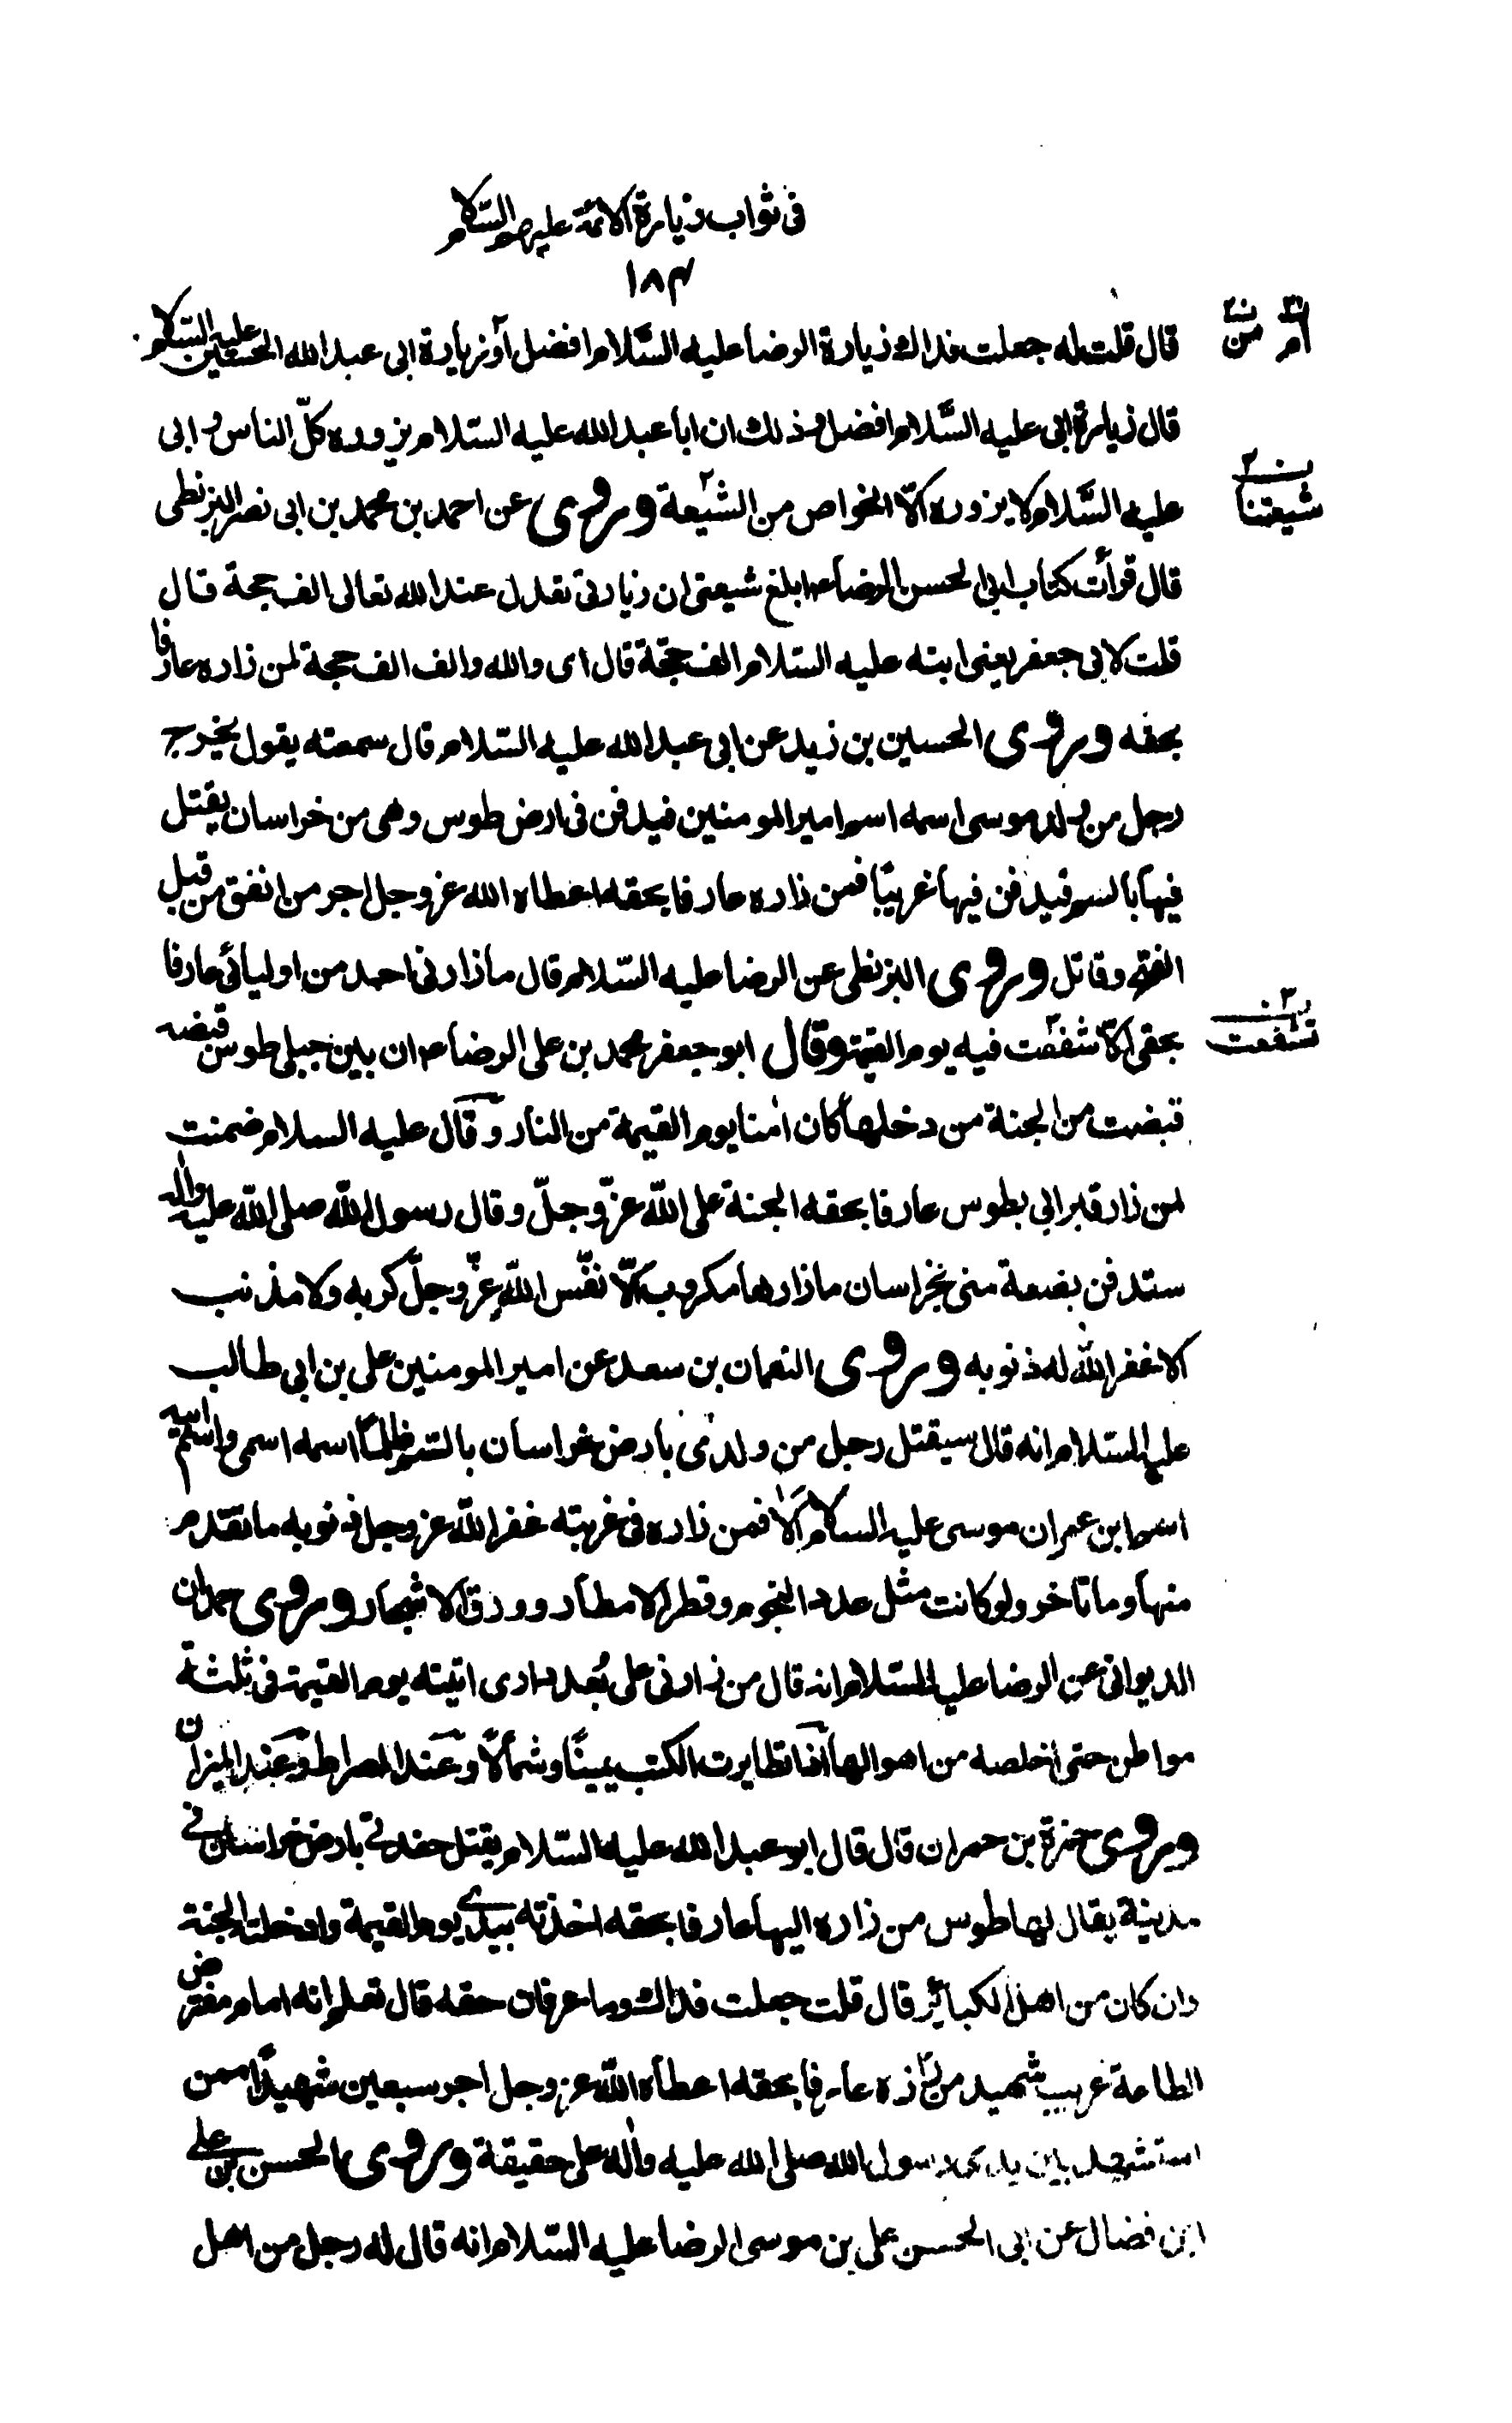 في ثواب زيارة الائمة عليهم السّلام
١٨٣
قال قلت له جعلت فداك زيارة الرضا عليه السَّلام افضل أو زيارة ابى عبد الله الحسين عليه السّلام
ام من
قال زيارة ابى عليه السَّلام افضل وذلك ان ابا عبد الله عليه السّلام يزوره كلّ الناس و ابى
عليه السَّلام لا يزوره الّا الخواص من الشيعة وروى عن احمد بن محمد بن ابى نصر البزنطى
شيعتنا
قال قرأت كتاب ابى الحسن الرضا ع ابلغ شيعتى ان زيارتى تعدل عند الله تعالى الف حجة قال
قلت لابى جعفر يعنى ابنه عليه السّلام الف حجّة قال اى والله والف الف حجة لمن زاره عارفا
بحقه وروى الحسين بن زيد عن ابى عبد الله عليه السّلام قال سمعته يقول يخرج
رجل من ولد موسى اسمه اسم امير المومنين فيدفن فى ارض طوس وهى من خراسان يقتل
فيها بالسم فيدفن فيها غريبًا فمن زاره عارفا بحقه اعطاه الله عز وجل اجر من انفق من قبل
الفتح وقاتل وروى البزنطى عن الرضا عليه السّلام قال ما زارنى احد من اوليائى عارفا
بحقى الّا شفعت فيه يوم القيمة وقال ابو جعفر محمد بن على الرضا ع ان بين جبلى طوس قبضه
تشفعت
قبضت من الجنة من دخلها كان امنا يوم القيمة من النار وقال عليه السلام ضمنت
لمن زار قبر ابى بطوس عارفا بحقه الجنة على اللّه عزّ وجلّ وقال رسول اللّه صلى اللّه عليه واله
ستدفن بضعة منى بخراسان ما زارها مكروب الّا نفّس اللّه عزّ وجلّ كربه ولا مذنب
الا غفر اللّه له ذنوبه وروى النعمان بن سعد عن امير المومنين على بن ابى طالب
عليه السّلام انه قال سيقتل رجل من ولدى بارض خراسان بالسّم ظلمًا اسمه اسمى واسم ابيه
اسم ابن عمران موسى عليه السلام الا فمن زاره فى غربته غفر اللّه عز وجل ذنوبه ما تقدم
منها وما تاخر ولو كانت مثل عدد النجوم وقطر الامطار وورق الاشجار وروى حمدان
الديوانى عن الرضا عليه السّلام انه قال من زارنى على بُعد دارى اتيته يوم القيمة فى ثلثة
مواطن حتى اخلصه من اهوالها اذا تطايرت الكتب يمينًا وشمالًا وعند الصراط وعند الميزان
وروى حمزة بن حمران قال قال ابو عبد الله عليه السّلام يقتل حفدتى بارض خراسان فى
مدينة يقال لها طوس من زاره اليها عارفا بحقه اخذته بيدى يوم القيمة وادخلته الجنة
وان كان من اهل الكبائر قال قلت جعلت فداك وما عرفان حقه قال تعلم انه امام مفترض
الطاعة غريب شهيد من زاره عارفا بحقه اعطاه اللّه عز وجل اجر سبعين شهيدًا ممن
استشهد بين يدى رسول الله صلى الله عليه واله على حقيقة وروى الحسن بن على
ابن فضال عن ابى الحسن على بن موسى الرضا عليه السّلام انه قال له رجل من اهل